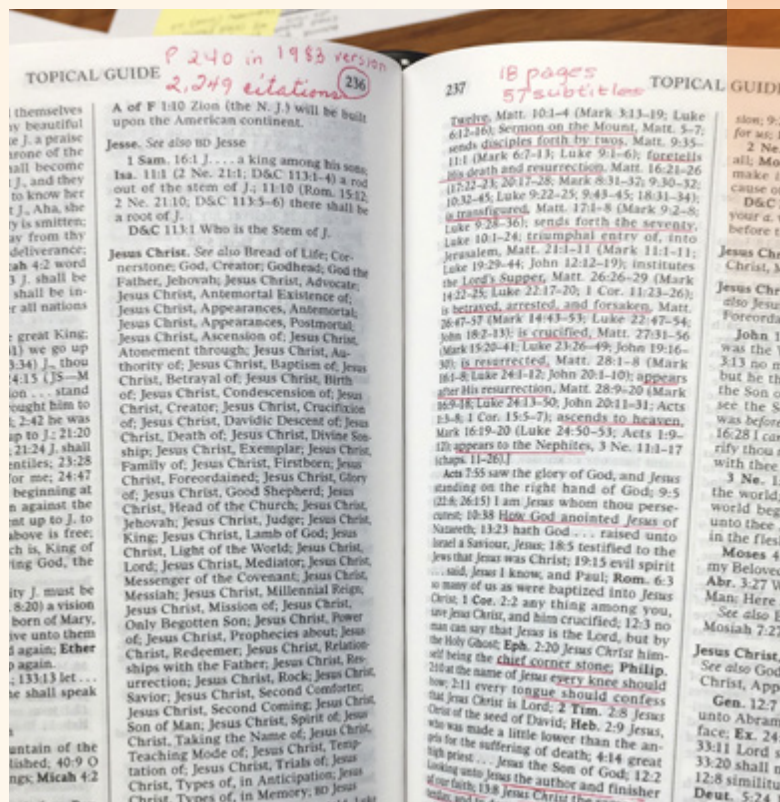 P 240 in 1983 version
2,249 citations
TOPICAL GUIDE
236
themselves
y beautiful
e J. a praise
rone of the
all become
J., and they
to know her
J., Aha, she
y is smitten;
ay from thy
deliverance;
ah 4:2 word
J. shall be
shall be in-
r all nations
great King;
1) we go up
3:34) J., thou
4:15 (JS—M
on . . . stand
ought him to
; 2:42 he was
up to J.; 21:20
21:24 J. shall
entiles; 23:28
or me; 24:47
beginning at
n against the
nt up to J. to
bove is free;
ch is, King of
ing God, the
ity J. must be
8:20) a vision
born of Mary,
ve unto them
d again; Ether
p again.
; 133:13 let . . .
ne shall speak
untain of the
ed; 40:9 O
ngs; Micah 4:2
A of F 1:10 Zion (the N. J.) will be built
upon the American continent.
Jesse. See also BD Jesse
1 Sam. 16:1 J. . . . a king among his sons;
Isa. 11:1 (2 Ne. 21:1; D&C 113:1–4) a rod
out of the stem of J.; 11:10 (Rom. 15:12;
2 Ne. 21:10; D&C 113:5–6) there shall be
a root of J.
D&C 113:1 Who is the Stem of J.
Jesus Christ. See also Bread of Life; Cor-
nerstone; God, Creator; Godhead; God the
Father, Jehovah; Jesus Christ, Advocate;
Jesus Christ, Antemortal Existence of;
Jesus Christ, Appearances, Antemortal;
Jesus Christ, Appearances, Postmortal;
Jesus Christ, Ascension of; Jesus Christ,
Atonement through; Jesus Christ, Au-
thority of; Jesus Christ, Baptism of; Jesus
Christ, Betrayal of; Jesus Christ, Birth
of; Jesus Christ, Condescension of; Jesus
Christ, Creator; Jesus Christ, Crucifixion
of; Jesus Christ, Davidic Descent of; Jesus
Christ, Death of; Jesus Christ, Divine Son-
ship; Jesus Christ, Exemplar; Jesus Christ,
Family of; Jesus Christ, Firstborn; Jesus
Christ, Foreordained; Jesus Christ, Glory
of; Jesus Christ, Good Shepherd; Jesus
Christ, Head of the Church; Jesus Christ,
Jehovah; Jesus Christ, Judge; Jesus Christ,
King; Jesus Christ, Lamb of God; Jesus
Christ, Light of the World; Jesus Christ,
Lord; Jesus Christ, Mediator; Jesus Christ,
Messenger of the Covenant; Jesus Christ,
Messiah; Jesus Christ, Millennial Reign;
Jesus Christ, Mission of; Jesus Christ,
Only Begotten Son; Jesus Christ, Power
of; Jesus Christ, Prophecies about; Jesus
Christ, Redeemer; Jesus Christ, Relation-
ships with the Father; Jesus Christ, Res-
urrection; Jesus Christ, Rock; Jesus Christ,
Savior; Jesus Christ, Second Comforter;
Jesus Christ, Second Coming; Jesus Christ,
Son of Man; Jesus Christ, Spirit of; Jesus
Christ, Taking the Name of; Jesus Christ,
Teaching Mode of; Jesus Christ, Temp-
tation of; Jesus Christ, Trials of; Jesus
Christ, Types of, in Anticipation; Jesus
Christ, Types of, in Memory; BD Jesus
237
18 pages
57 subtitles
TOPICAL GUIDE
Twelve, Matt. 10:1–4 (Mark 3:13–19; Luke
6:12–16); Sermon on the Mount, Matt. 5–7;
sends disciples forth by twos, Matt. 9:35–
11:1 (Mark 6:7–13; Luke 9:1–6); foretells
His death and resurrection, Matt. 16:21–26
(17:22–23; 20:17–28; Mark 8:31–37; 9:30–32;
10:32–45; Luke 9:22–25; 9:43–45; 18:31–34);
is transfigured, Matt. 17:1–8 (Mark 9:2–8;
Luke 9:28–36); sends forth the seventy,
Luke 10:1–24; triumphal entry of, into
Jerusalem, Matt. 21:1–11 (Mark 11:1–11;
Luke 19:29–44; John 12:12–19); institutes
the Lord's Supper, Matt. 26:26–29 (Mark
14:22–25; Luke 22:17–20; 1 Cor. 11:23–26);
is betrayed, arrested, and forsaken, Matt.
26:47–57 (Mark 14:43–53; Luke 22:47–54;
John 18:2–13); is crucified, Matt. 27:31–56
(Mark 15:20–41; Luke 23:26–49; John 19:16–
30); is resurrected, Matt. 28:1–8 (Mark
16:1–8; Luke 24:1–12; John 20:1–10); appears
after His resurrection, Matt. 28:9–20 (Mark
16:9–18; Luke 24:13–50; John 20:11–31; Acts
1:3–8; 1 Cor. 15:5–7); ascends to heaven,
Mark 16:19–20 (Luke 24:50–53; Acts 1:9–
12); appears to the Nephites, 3 Ne. 11:1–17
(chaps. 11–26).]
Acts 7:55 saw the glory of God, and Jesus
standing on the right hand of God; 9:5
(22:8; 26:15) I am Jesus whom thou perse-
cutest; 10:38 How God anointed Jesus of
Nazareth; 13:23 hath God . . . raised unto
Israel a Saviour, Jesus; 18:5 testified to the
Jews that Jesus was Christ; 19:15 evil spirit
. . . said, Jesus I know, and Paul; Rom. 6:3
so many of us as were baptized into Jesus
Christ; 1 Cor. 2:2 any thing among you,
save Jesus Christ, and him crucified; 12:3 no
man can say that Jesus is the Lord, but by
the Holy Ghost; Eph. 2:20 Jesus Christ him-
self being the chief corner stone; Philip.
2:10 at the name of Jesus every knee should
bow; 2:11 every tongue should confess
that Jesus Christ is Lord; 2 Tim. 2:8 Jesus
Christ of the seed of David; Heb. 2:9 Jesus,
who was made a little lower than the an-
gels for the suffering of death; 4:14 great
high priest . . . Jesus the Son of God; 12:2
Looking unto Jesus the author and finisher
of our faith; 13:8 Jesus Christ the
sion; 9:
for us;
2 Ne.
all; Mo
make i
cause o
D&C
your a.
before t
Jesus Ch
Christ, M
Jesus Chr
also Jesu
Foreorda
John 1
was the
3:13 no m
but he th
the Son o
see the S
was before
16:28 I can
rify thou
with thee
3 Ne. 1
the world
world beg
unto thee
in the fles
Moses 4
my Beloved
Abr. 3:27 W
Man: Here
See also B
Mosiah 7:2
Jesus Christ,
See also God
Christ, App
Gen. 12:7
unto Abram
face; Ex. 24
33:11 Lord
33:20 shall n
12:8 similitu
Deut. 5:24